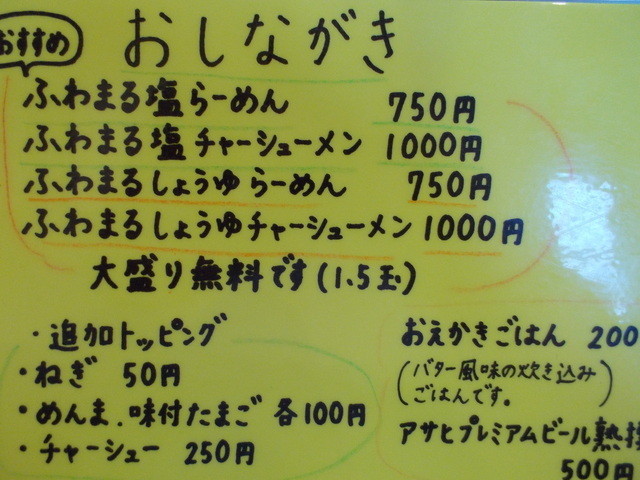 おすすめ
おしながき
ふわまる塩らーめん 750円
ふわまる塩チャーシューメン 1000円
ふわまるしょうゆらーめん 750円
ふわまるしょうゆチャーシューメン 1000円
大盛り無料です(1.5玉)
・追加トッピング
・ねぎ 50円
・めんま、味付たまご 各100円
・チャーシュー 250円
おえかきごはん 200
(バター風味の炊き込み
ごはんです。)
アサヒプレミアムビール熟撰
500円